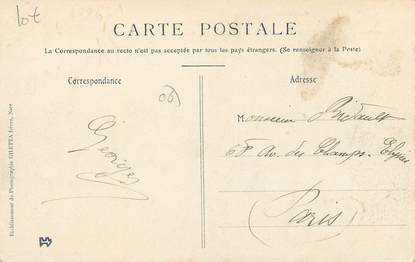 lot
CARTE POSTALE
La Correspondance au recto n'est pas acceptée par tous les pays étrangers. (Se renseigner à la Poste)
Correspondance
Adresse
06)
Georges
Monsieur Bidault
68 Av. des Champs-Elysées
(Paris)
Etablissement de Photographie GILETTA frères, Nice